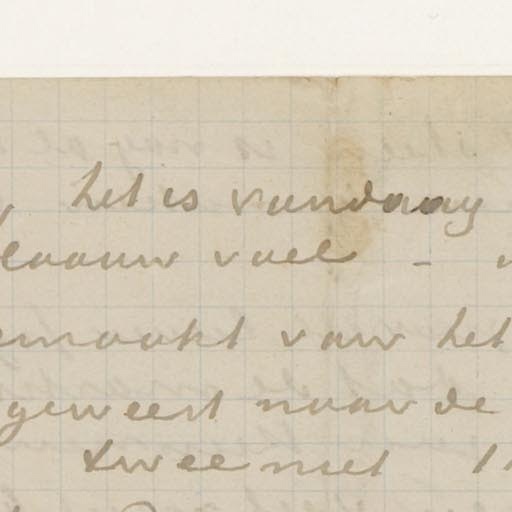 het is vandaag
laauw voel -
emaakt van het
geweest naar de
twee met